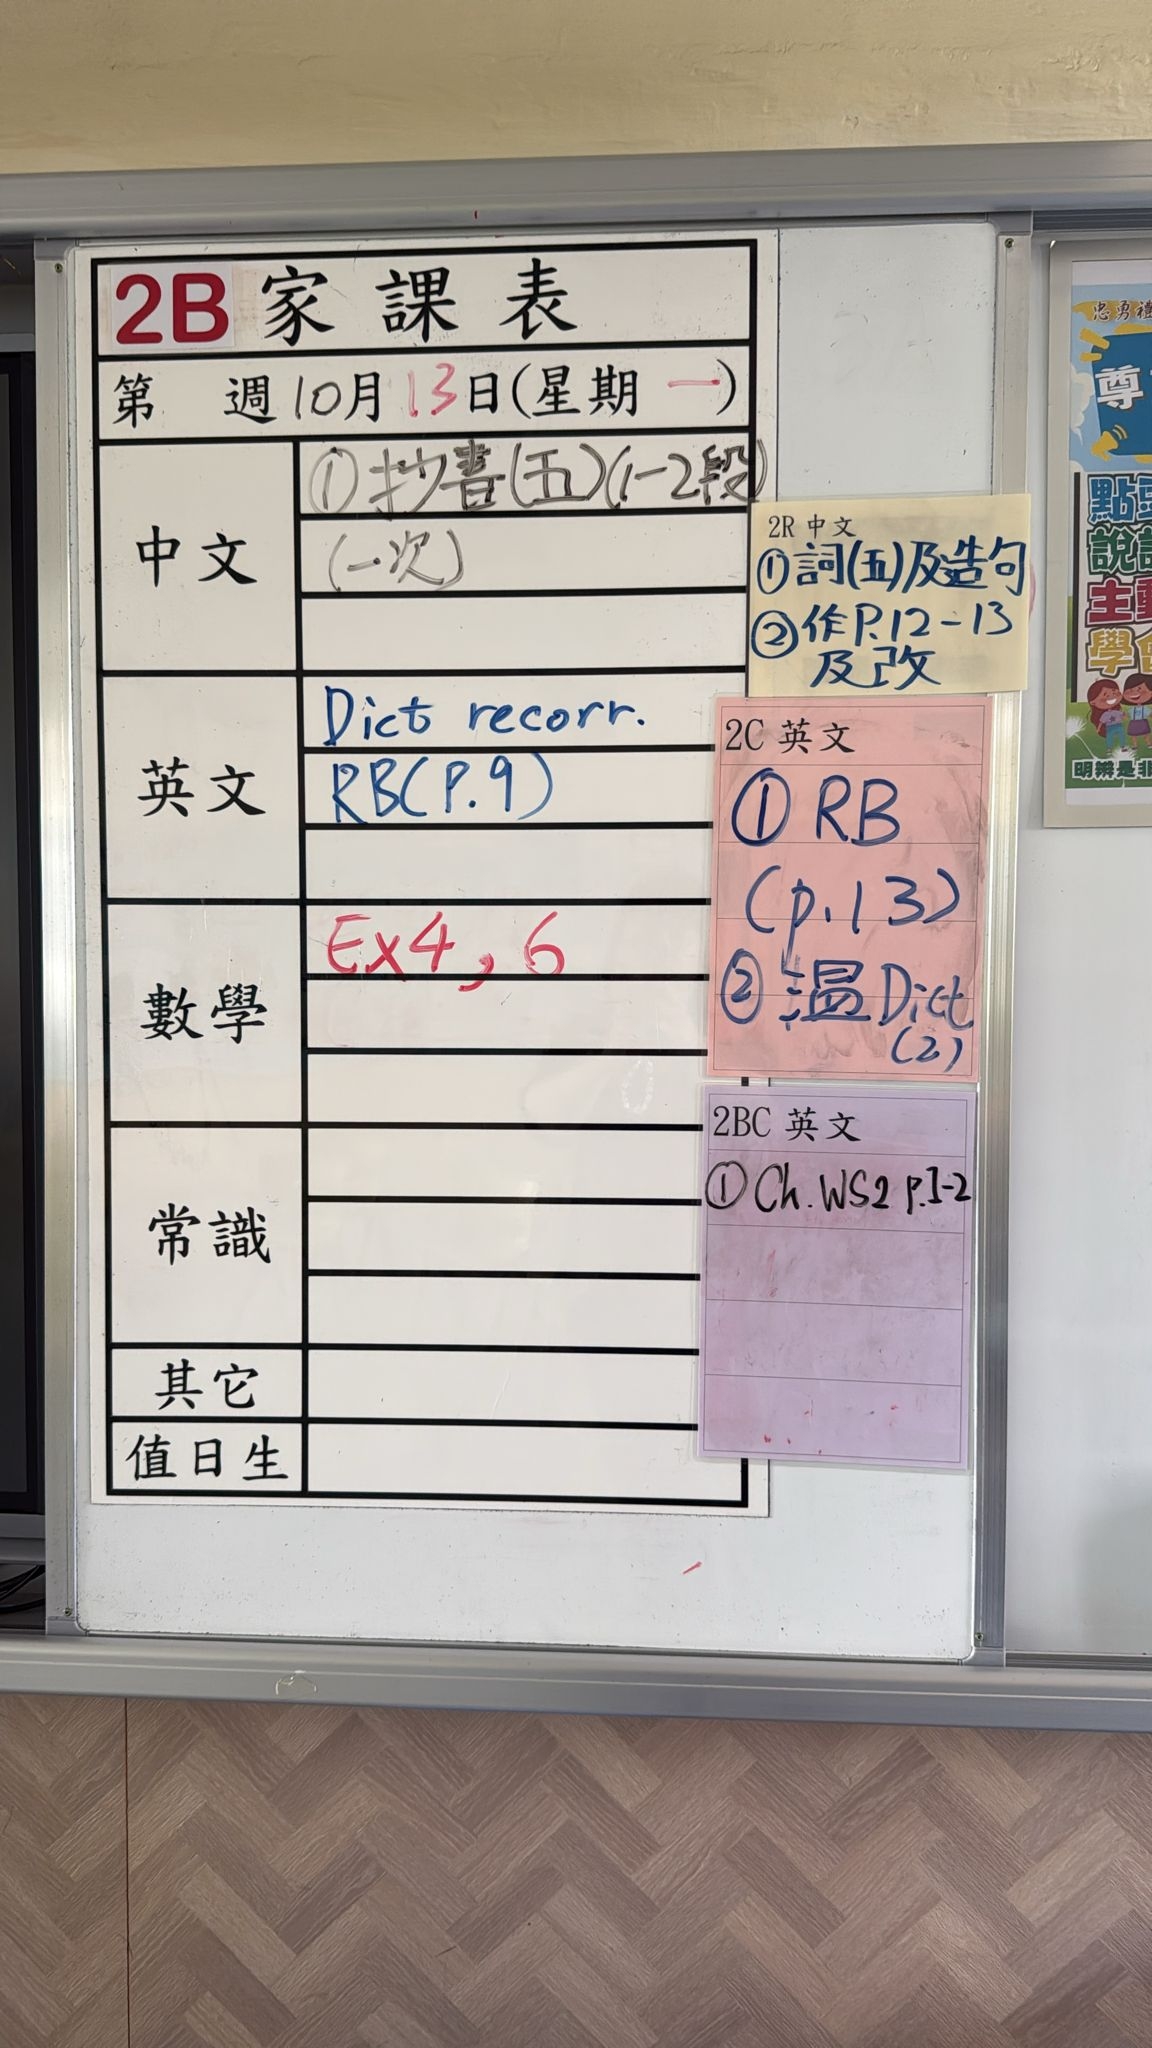 2B 家課表
第 週10月13日(星期一)
中文
①抄書(五)(1-2段)
(一次)
英文
Dict recorr.
RB(P.9)
數學
Ex4, 6
常識
其它
值日生
2R 中文
①詞(五)及造句
②作P.12-13
及改
2C 英文
① RB
(p.13)
② 溫Dict
(2)
2BC 英文
① Ch. WS2 p.1-2
忠勇禮
尊
點
說
主動
學會
明辨是非